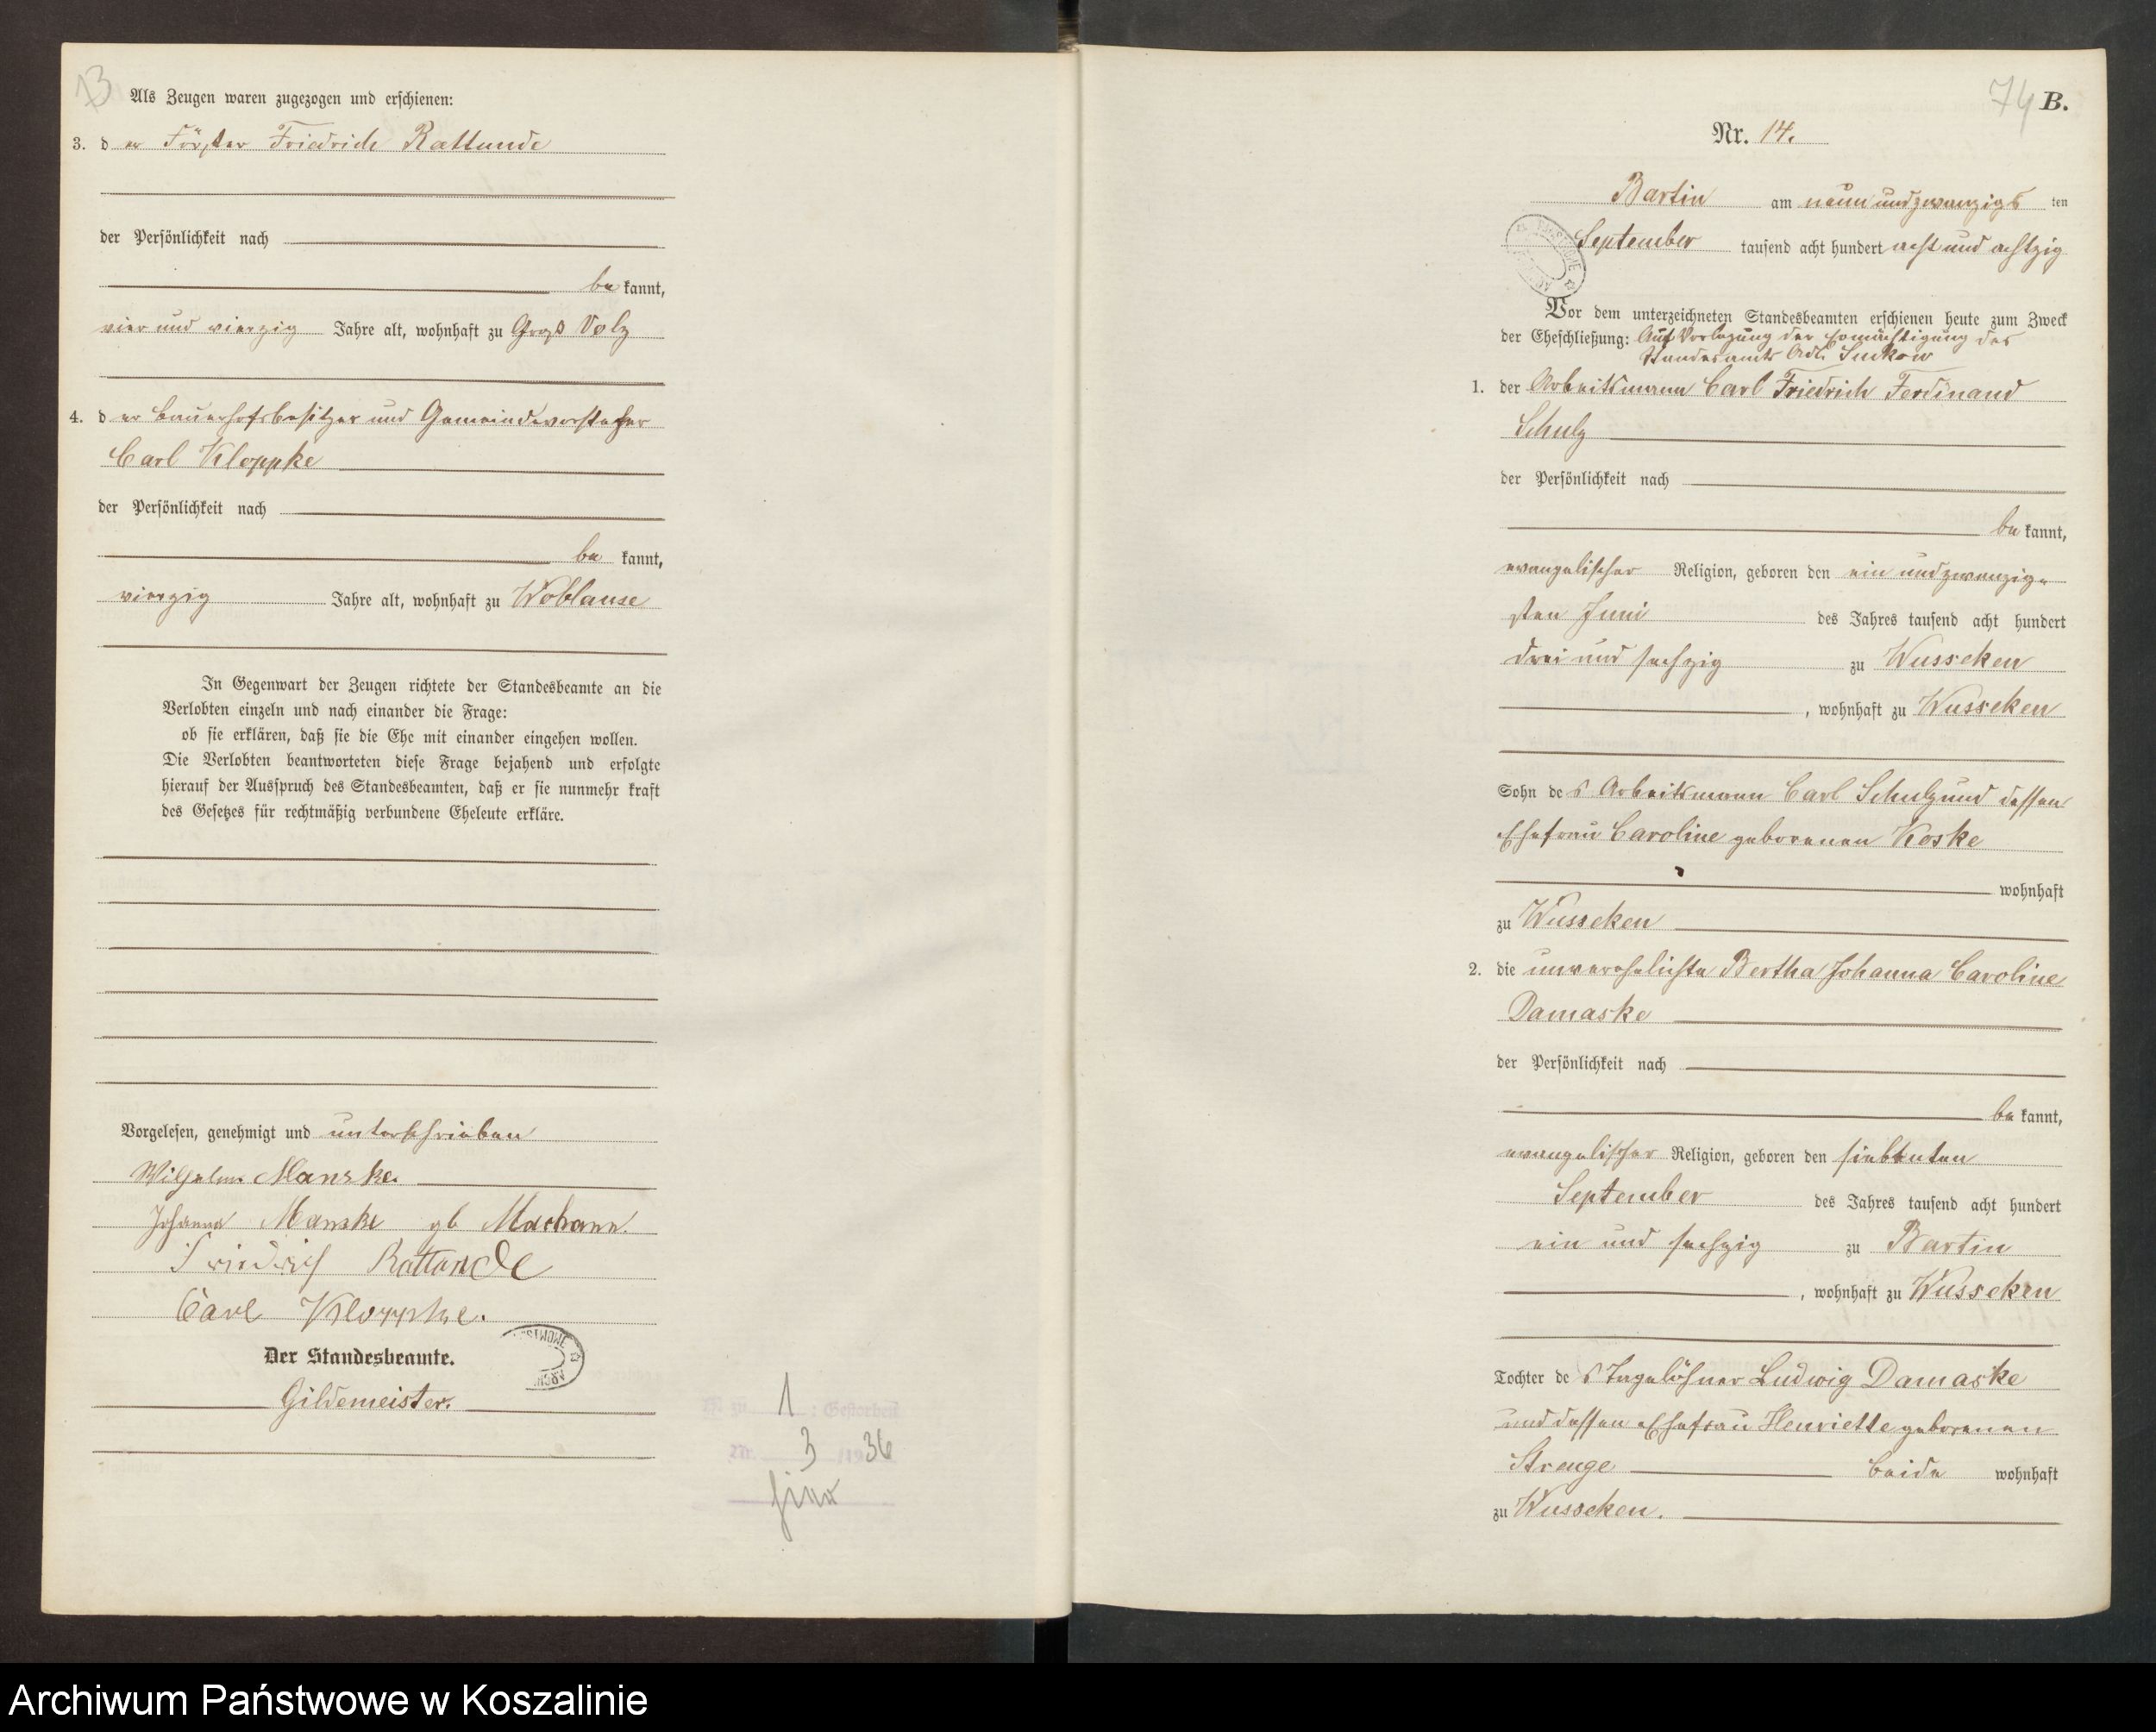 13
Als Zeugen waren zugezogen und erschienen:
3. der Förster Friedrich Rattunde
der Persönlichkeit nach
be kannt,
vier und vierzig Jahre alt, wohnhaft zu Groß Volz
4. der Bauerhofsbesitzer und Gemeindevorsteher
Carl Kloppke
der Persönlichkeit nach
be kannt,
vierzig Jahre alt, wohnhaft zu Woblanse
In Gegenwart der Zeugen richtete der Standesbeamte an die
Verlobten einzeln und nach einander die Frage:
ob sie erklären, daß sie die Ehe mit einander eingehen wollen.
Die Verlobten beantworteten diese Frage bejahend und erfolgte
hierauf der Ausspruch des Standesbeamten, daß er sie nunmehr kraft
des Gesetzes für rechtmäßig verbundene Eheleute erkläre.
Vorgelesen, genehmigt und unterschrieben
Wilhelm Manske.
Johanna Manske gb Machann.
Friedrich Rattunde
Carl Kloppke.
Der Standesbeamte.
Gildemeister.
zu 1 : Gestorben
Nr. 3 /19 36
74 B.
Nr. 14.
Bartin am neun und zwanzigs ten
September tausend acht hundert acht und achtzig
Vor dem unterzeichneten Standesbeamten erschienen heute zum Zweck
der Eheschließung: Auf Vorlegung der Ermächtigung des
Standesamts Adl. Suckow
1. der Arbeitsmann Carl Friedrich Ferdinand
Schulz
der Persönlichkeit nach
be kannt,
evangelischer Religion, geboren den ein und zwanzig-
sten Juni des Jahres tausend acht hundert
drei und sechzig zu Wusseken
, wohnhaft zu Wusseken
Sohn des Arbeitsmann Carl Schulz und dessen
Ehefrau Caroline geborenen Koske
wohnhaft
zu Wusseken
2. die unverehelichte Bertha Johanna Caroline
Damaske
der Persönlichkeit nach
be kannt,
evangelischer Religion, geboren den siebenten
September des Jahres tausend acht hundert
ein und sechzig zu Bartin
, wohnhaft zu Wusseken
Tochter des Tagelöhner Ludwig Damaske
und dessen Ehefrau Henriette geborenen
Strenge beide wohnhaft
zu Wusseken.
Archiwum Państwowe w Koszalinie